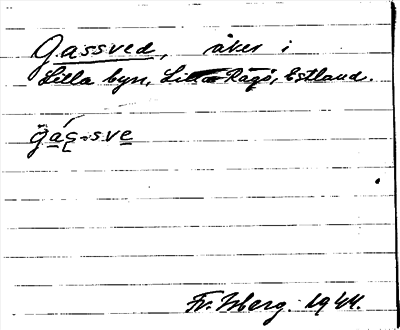 Gassved, åker i
Lilla byn, Lilla Rågö, Estland.
Fr. Isberg. 1944